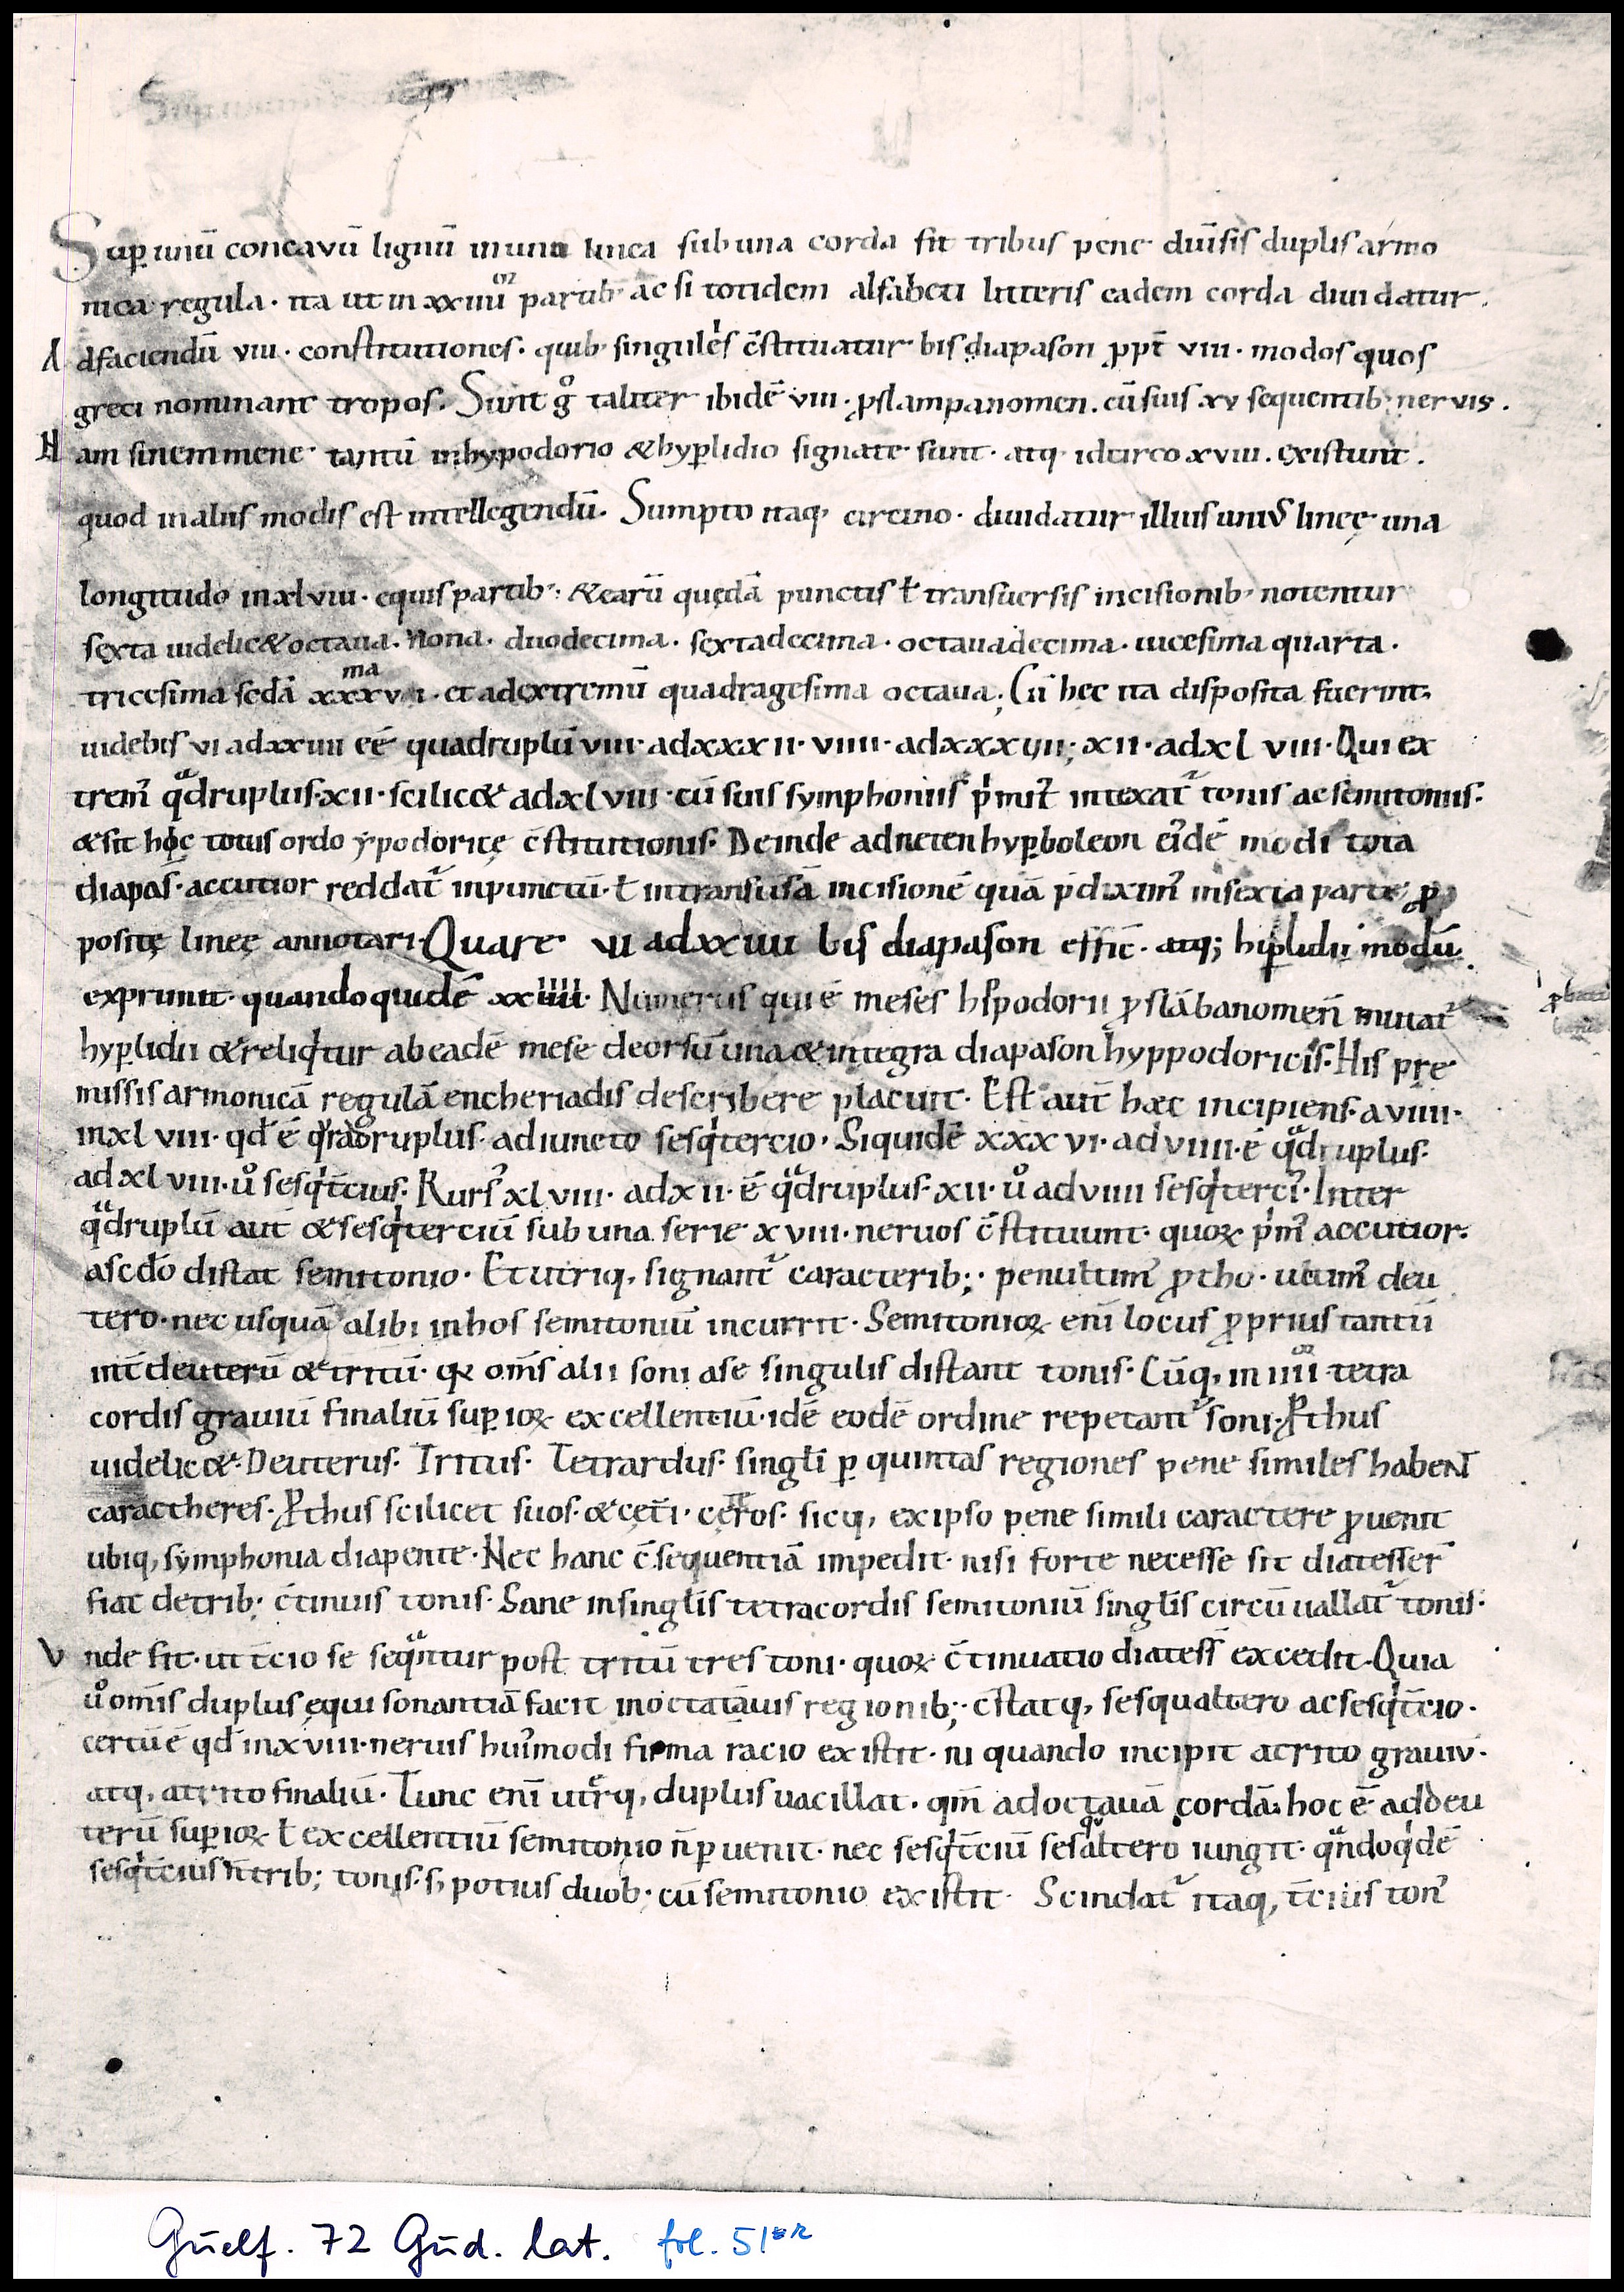 Sup̱ unū concavū lignū in una linea sub una corda sit tribus pene diuisis duplis armo
nica regula · ita ut in xxiiii or partib; ac si totidem alfabeti litteris eadem corda diuidatur.
A dfaciendū viii · constitutiones · quib; singulis c̄stituatur bisdiapason ꝓpt̄ viii · modos quos
greci nominant tropos. Sunt gͦ taliter ibidē viii · ꝓslampanomen. cū suis xv sequentib; nervis.
N am sinemmene · tantū in hypodorio & hyp̱lidio signate sunt · atq; idcirco xviii. existunt.
quod in aliis modis est intellegendū. Sumpto itaq; circino · diuidatur illius uniꝰ lineę una
longitudo in xlviii · equis partib; & earū quędā punctis ł transuersis incisionib; notentur
sexta uidelic& octaua. Nona. duodecima · sextadecima · octauadecima · uicesima quarta.
tricesima secdā xxxvi ma · et ad extremū quadragesima octaua; Cū hec ita disposita fuerint
uidebis vi ad xxiiii eē quadruplū viii · ad xxxii · viiii · ad xxxvi; xii · ad xlviii · Qui ex
trem᷒ qͣdruplus · xii · scilic& ad xlviii · cū suis symphoniis pͥmit᷒ intexat᷒ tonis ac semitoniis.
& sit hęc totus ordo ypodoricę c̄stitutionis. Deinde ad neten hyp̱boleon ei᷒dē modi tota
diapas · accutior reddat᷒ in punctū · ł in transūsā incisionē quā p̄dixim᷒ in sexta parte ꝓ
positę lineę annotari · Quare vi ad xxiiii bis diapason effic̄ · atq; hip̱lidii modū
exprimit · quandoquidē xxiiii. Numerus qui ē meses hipodorii ꝓslābanomen̄ mutat᷒
hyp̱lidii & relinqͥtur ab eadē mese deorsū una & integra diapason hyppodoricis. His pre
missis armonicā regulā encheriadis describere placuit. Est aut̄ hæc incipiens a viiii ·
in xlviii · qd̄ ē qͣdruplus · adiuncto sesqͥtercio. Siquidē xxxvi · ad viiii · ē qͣdruplus ·
ad xlviii · uͦ sesqͥt̄cius. Rurs᷒ xlviii · ad xii · ē qͣdruplus · xii · uͦ ad viiii sesqͥterci᷒. Inter
qͣdruplū aut̄ & sesqͥterciū sub una serie xviii · neruos c̄stituunt · quoꝝ pͥm᷒ accutior ·
a scdo̅ distat semitonio. Et utriq; signant᷒ caracterib;. penultim᷒ ꝓtho · ultim᷒ deu
tero · nec usquā alibi in hos semitoniū incurrit. Semitonioꝝ eni̅ locus ꝓprius tantū
int̄ deuterū & tritū · qꝛ om̄s alii soni a se singulis distant tonis. Cūq; in iiii or tetra
cordis grauiū finaliū sup̱ioꝝ excellentiū · idē eodē ordine repetant᷒ soni · Ꝓthus
uidelic&. Deuterus. Tritus. Tetrardus. singłi p̱ quintas regiones pene similes habent
caractheres. Ꝓthus scilicet suos. & cęt̄i · cęt̄os. sicq; ex ipso pene simili caractere ꝓuenit
ubiq; symphonia diapente. Nec hanc c̄sequentiā impedit · nisi forte necesse sit diatesser̄
fiat de trib; c̄tinuis tonis. Sane in singłis tetracordis semitoniū singłis circū uallat᷒ tonis.
V nde fit · ut t̄cio se sequͣntur post tritū tres toni · quoꝝ c̄tinuatio diatess̄ excedit. Quia
uͦ om̄is duplus ęqui sonantiā facit in octauis regionib;. c̄statq; sesqualtero ac sesqͥt̄cio.
certū ē qd̄ in xviii · neruis hui᷒modi firma racio existit · ni quando incipit a trito grauiū ·
atq; a trito finaliū. Tunc eni̅ ut̄rq; duplus uacillat · qm̄ ad octauā cordā · hoc ē ad deu
terū sup̱ioꝝ ł excellentiū semitonio n̄ p̱uenit · nec sesqͥt̄ciū sesqͣltero iungit · qͣndoqͥdē
sesqͥt̄cius n̄ trib; tonis · s; potius duob; cū semitonio existit. Scindat᷒ itaq; t̄cius ton᷒
Guelf. 72 Gud. lat. fol. 51*r